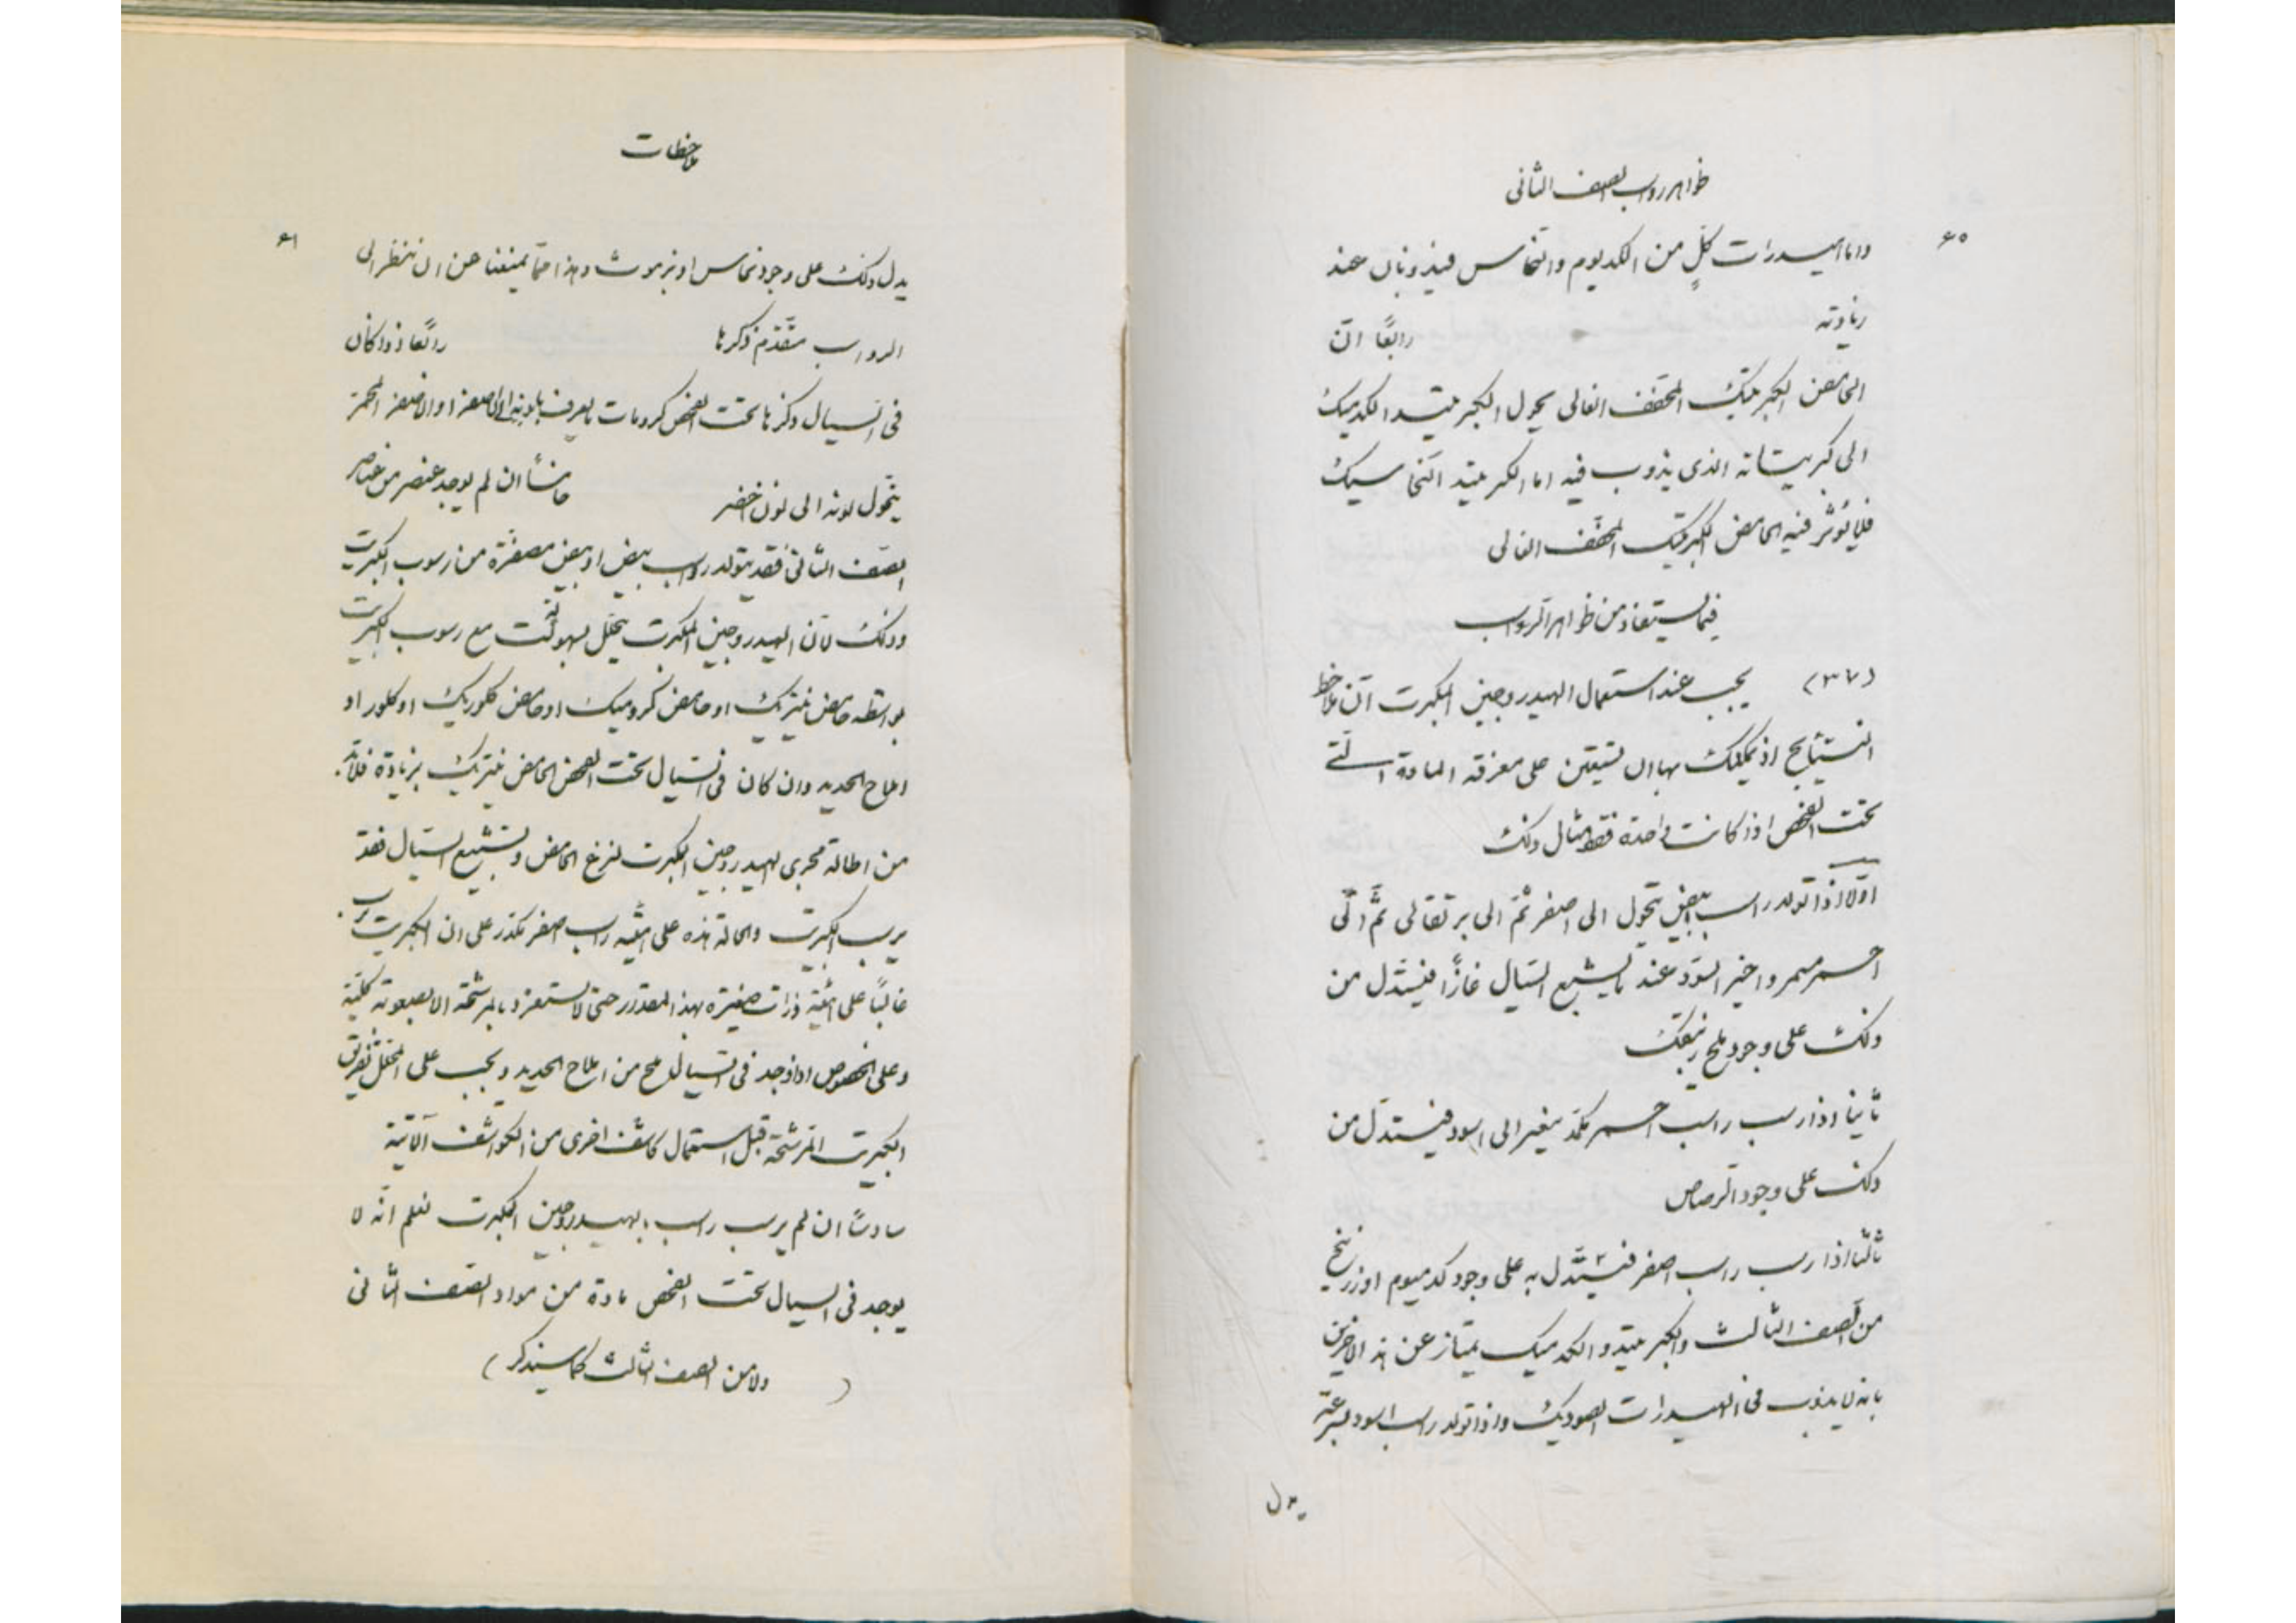 ظواهر رواسب الصنف الثانی
۶۰
واما هیدرات کلٍ من الکدیوم والنحاس فیذوبان عند
زیادته رابعًا انّ
الحامض الکبریتیک المخفف الغالی یحول الکبریتید الکدمیک
الی کبریتاته الذی یذوب فیه اما الکبریتید النحاسیک
فلا یؤثر فیه الحامض الکبریتیک المخفف الغالی
فیما یستفاد من ظواهر الرواسب
(۳۷) یجب عند استعمال الهیدروجین المکبرت ان تلاحظ
النتایج اذ یمکنک بها ان تستیقن علی معرفة المادة الّتی
تحت الفحص اذا کانت واحدة فقط مثال ذلک
اوّلا اذا تولد راسب ابیض یتحول الی اصفر ثمّ الی برتقالی ثمّ الی
احمر مسمر واخیر اسود عند ما یشبع السیال غازًا فیستدل من
ذلک علی وجود ملح زیبقیک
ثانیا اذا رسب راسب احمر مکمد یتغیر الی اسود فیستدل من
ذلک علی وجود الرصاص
ثالثا اذا رسب راسب اصفر فیستدل به علی وجود کدمیوم او زرنیخ
من الصنف الثالث والکبریتید الکدمیک یمتاز عن هذا الاخیر
بانه لا یذوب فی الهیدرات الصودیک واذا تولد راسب اسود بسرعة
یدل
ملاحظات
۶۱
یدل ذلک علی وجود نحاس او بزموث وهذا حمّا یمنعنا عن ان ننظر الی
الرواسب متقدّم ذکرها رابعًا اذا کان
فی السیال وکرنا تحت الفحص کرومات یعرف بلونه الاصفر او الاصفر المحمر
یتحول لونه الی لون اخضر خامسًا ان لم یوجد عنصر من عناصر
الصنف الثانی فقد یتولد راسب ابیض او ابیض مصفرّ من رسوب الکبریت
وذلک لانّ الهیدروجین المکبرت یتحلل بسهولت مع رسوب الکبریت
بواسطه حامض نیتریک او حامض کرومیک او حامض کلوریک او کلور او
املاح الحدید وان کان فی السیال تحت الفحص الحامض نیتریک بزیادة فلابد
من اطالة مجری الهیدروجین المکبرت لنزع الحامض وتشبیع السیال فقد
یرسب الکبریت والحالة هذه علی هیئة راسب اصفر مکدر علی ان الکبریت یرسب
غالبًا علی هیئة ذرات صغیرة بهذا المقدر حتی لا تستفرد بالمرشحة الا بصعوته کلیّة
وعلی الخصوص اذا وجد فی السیال ملح من املاح الحدید ویجب علی المحلل تفریق
الکبریت المترشحة قبل استعمال کاشف اخری من الکواشف الآتیة
سادسًا ان لم یرسب راسب بهیدروجین المکبرت نعلم انّه لا
یوجد فی السیال تحت الفحص مادة من مواد الصنف الثانی
( ولا من الصنف الثالث کما سیذکر )